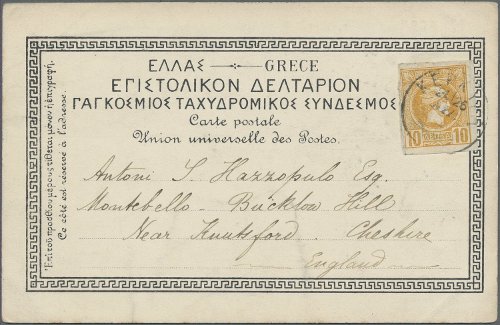 ΕΛΛΑΣ — GRECE
ΕΠΙΣΤΟΛΙΚΟΝ ΔΕΛΤΑΡΙΟΝ
ΠΑΓΚΟΣΜΙΟΣ ΤΑΧΥΔΡΟΜΙΚΟΣ ΣΥΝΔΕΣΜΟΣ
Carte postale
Union universelle des Postes.
Antoni S. Hazzopulo Esq.
Montebello - Bücklow Hill
Near Knutsford. Cheshire
England
Ἐπὶ τοῦ προσθίου μέρους τίθεται μόνον ἡ ἐπιγραφή.
Ce côté est réservé à l'adresse.
10 10